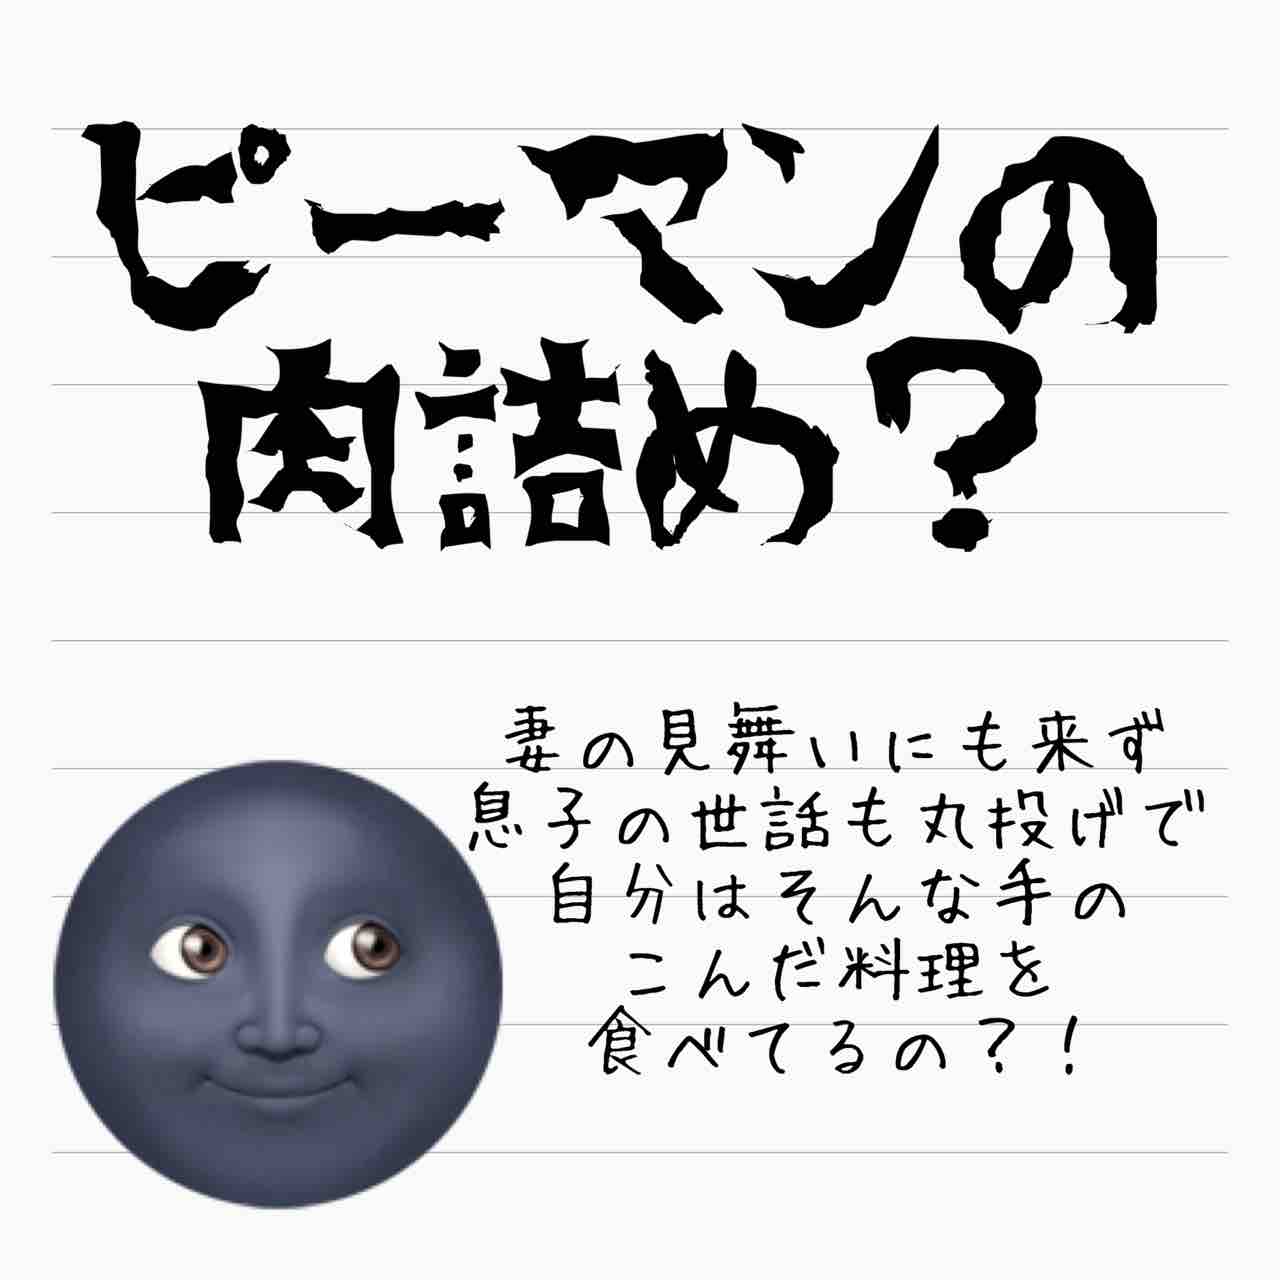 ピーマンの
肉詰め?
妻の見舞いにも来ず
息子の世話も丸投げで
自分はそんな手の
こんだ料理を
食べてるの?!